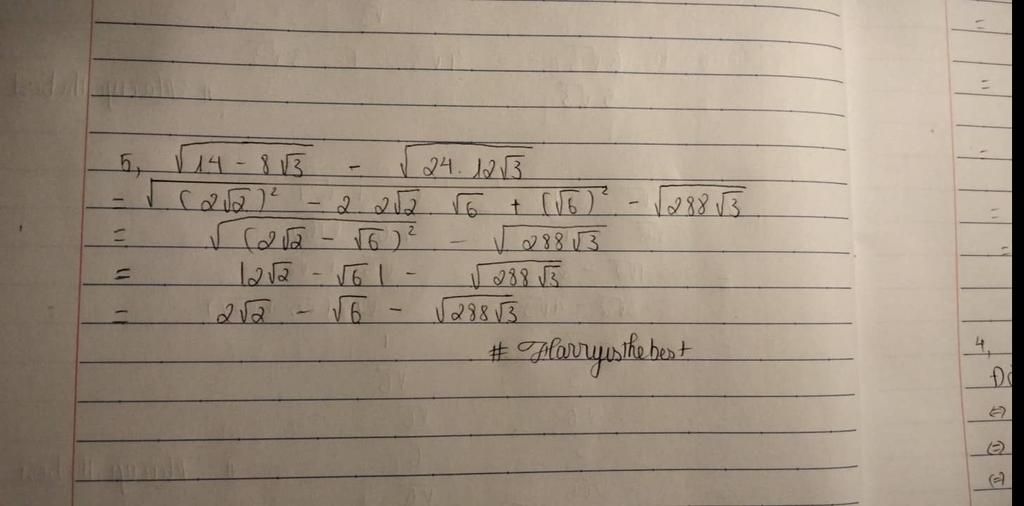 5, √(14 - 8√3) - √(24 . 12√3)
= √((2√2)² - 2 2√2 √6 + (√6)²) - √(288√3)
= √((2√2 - √6)²) - √(288√3)
= |2√2 - √6| - √(288√3)
= 2√2 - √6 - √(288√3)
# Harryisthebest
=
=
-
=
=
4,
⇔
⇔
⇔